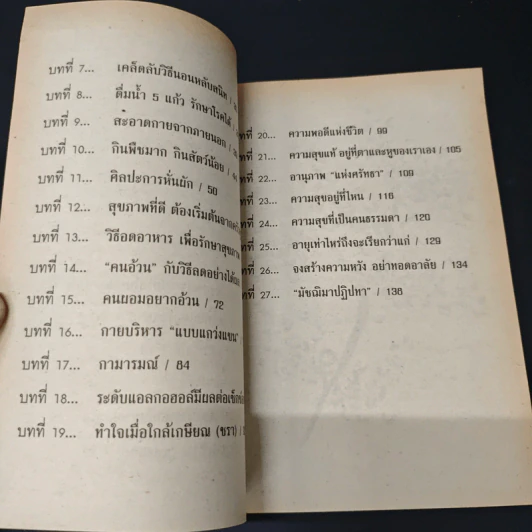 บทที่ 7... เคล็ดลับวิธีนอนหลับสนิท /
บทที่ 8... ดื่มน้ำ 5 แก้ว รักษาโรคได้ /
บทที่ 9... สะอาดกายจากภายนอก /
บทที่ 10... กินพืชมาก กินสัตว์น้อย /
บทที่ 11... ศิลปะการหั่นผัก / 50
บทที่ 12... สุขภาพที่ดี ต้องเริ่มต้น
บทที่ 13... วิธีอดอาหาร เพื่อรักษาสุขภาพ
บทที่ 14... "คนอ้วน" กับวิธีลดอย่าง
บทที่ 15... คนผอมอยากอ้วน / 72
บทที่ 16... กายบริหาร "แบบแกว่งแขน"
บทที่ 17... กามารมณ์ / 84
บทที่ 18... ระดับแอลกอฮอล์มีผลต่อ
บทที่ 19... ทำใจเมื่อใกล้เกษียณ (ชรา) /
ที่ 20... ความพอดีแห่งชีวิต / 99
ที่ 21... ความสุขแท้ อยู่ที่ตาและหูของเราเอง / 105
ที่ 22... อานุภาพ "แห่งศรัทธา" / 109
ที่ 23... ความสุขอยู่ที่ไหน / 116
ที่ 24... ความสุขที่เป็นคนธรรมดา / 120
ที่ 25... อายุเท่าไหร่ถึงจะเรียกว่าแก่ / 129
ที่ 26... จงสร้างความหวัง อย่าทอดอาลัย / 134
ที่ 27... "มัชฌิมาปฏิปทา" / 138